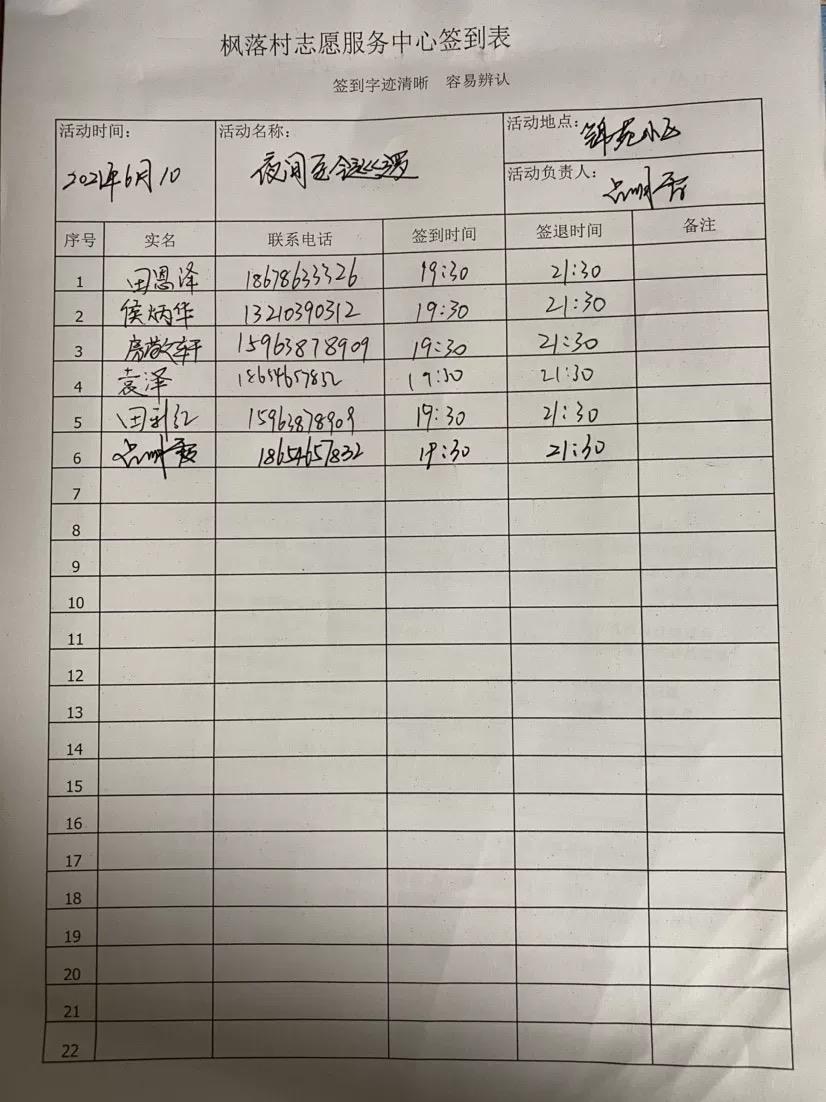 枫落村志愿服务中心签到表
签到字迹清晰 容易辨认
活动时间: 2021年6月10
活动名称: 夜间安全巡逻
活动地点: 锦苑小区
活动负责人:
序号 实名 联系电话 签到时间 签退时间 备注
1 田恩泽 18678633326 19:30 21:30
2 侯炳华 13210390312 19:30 21:30
3 房敬轩 15963878909 19:30 21:30
4 袁泽 18654657832 19:30 21:30
5 田利红 15963878909 19:30 21:30
6 18654657832 19:30 21:30
7
8
9
10
11
12
13
14
15
16
17
18
19
20
21
22